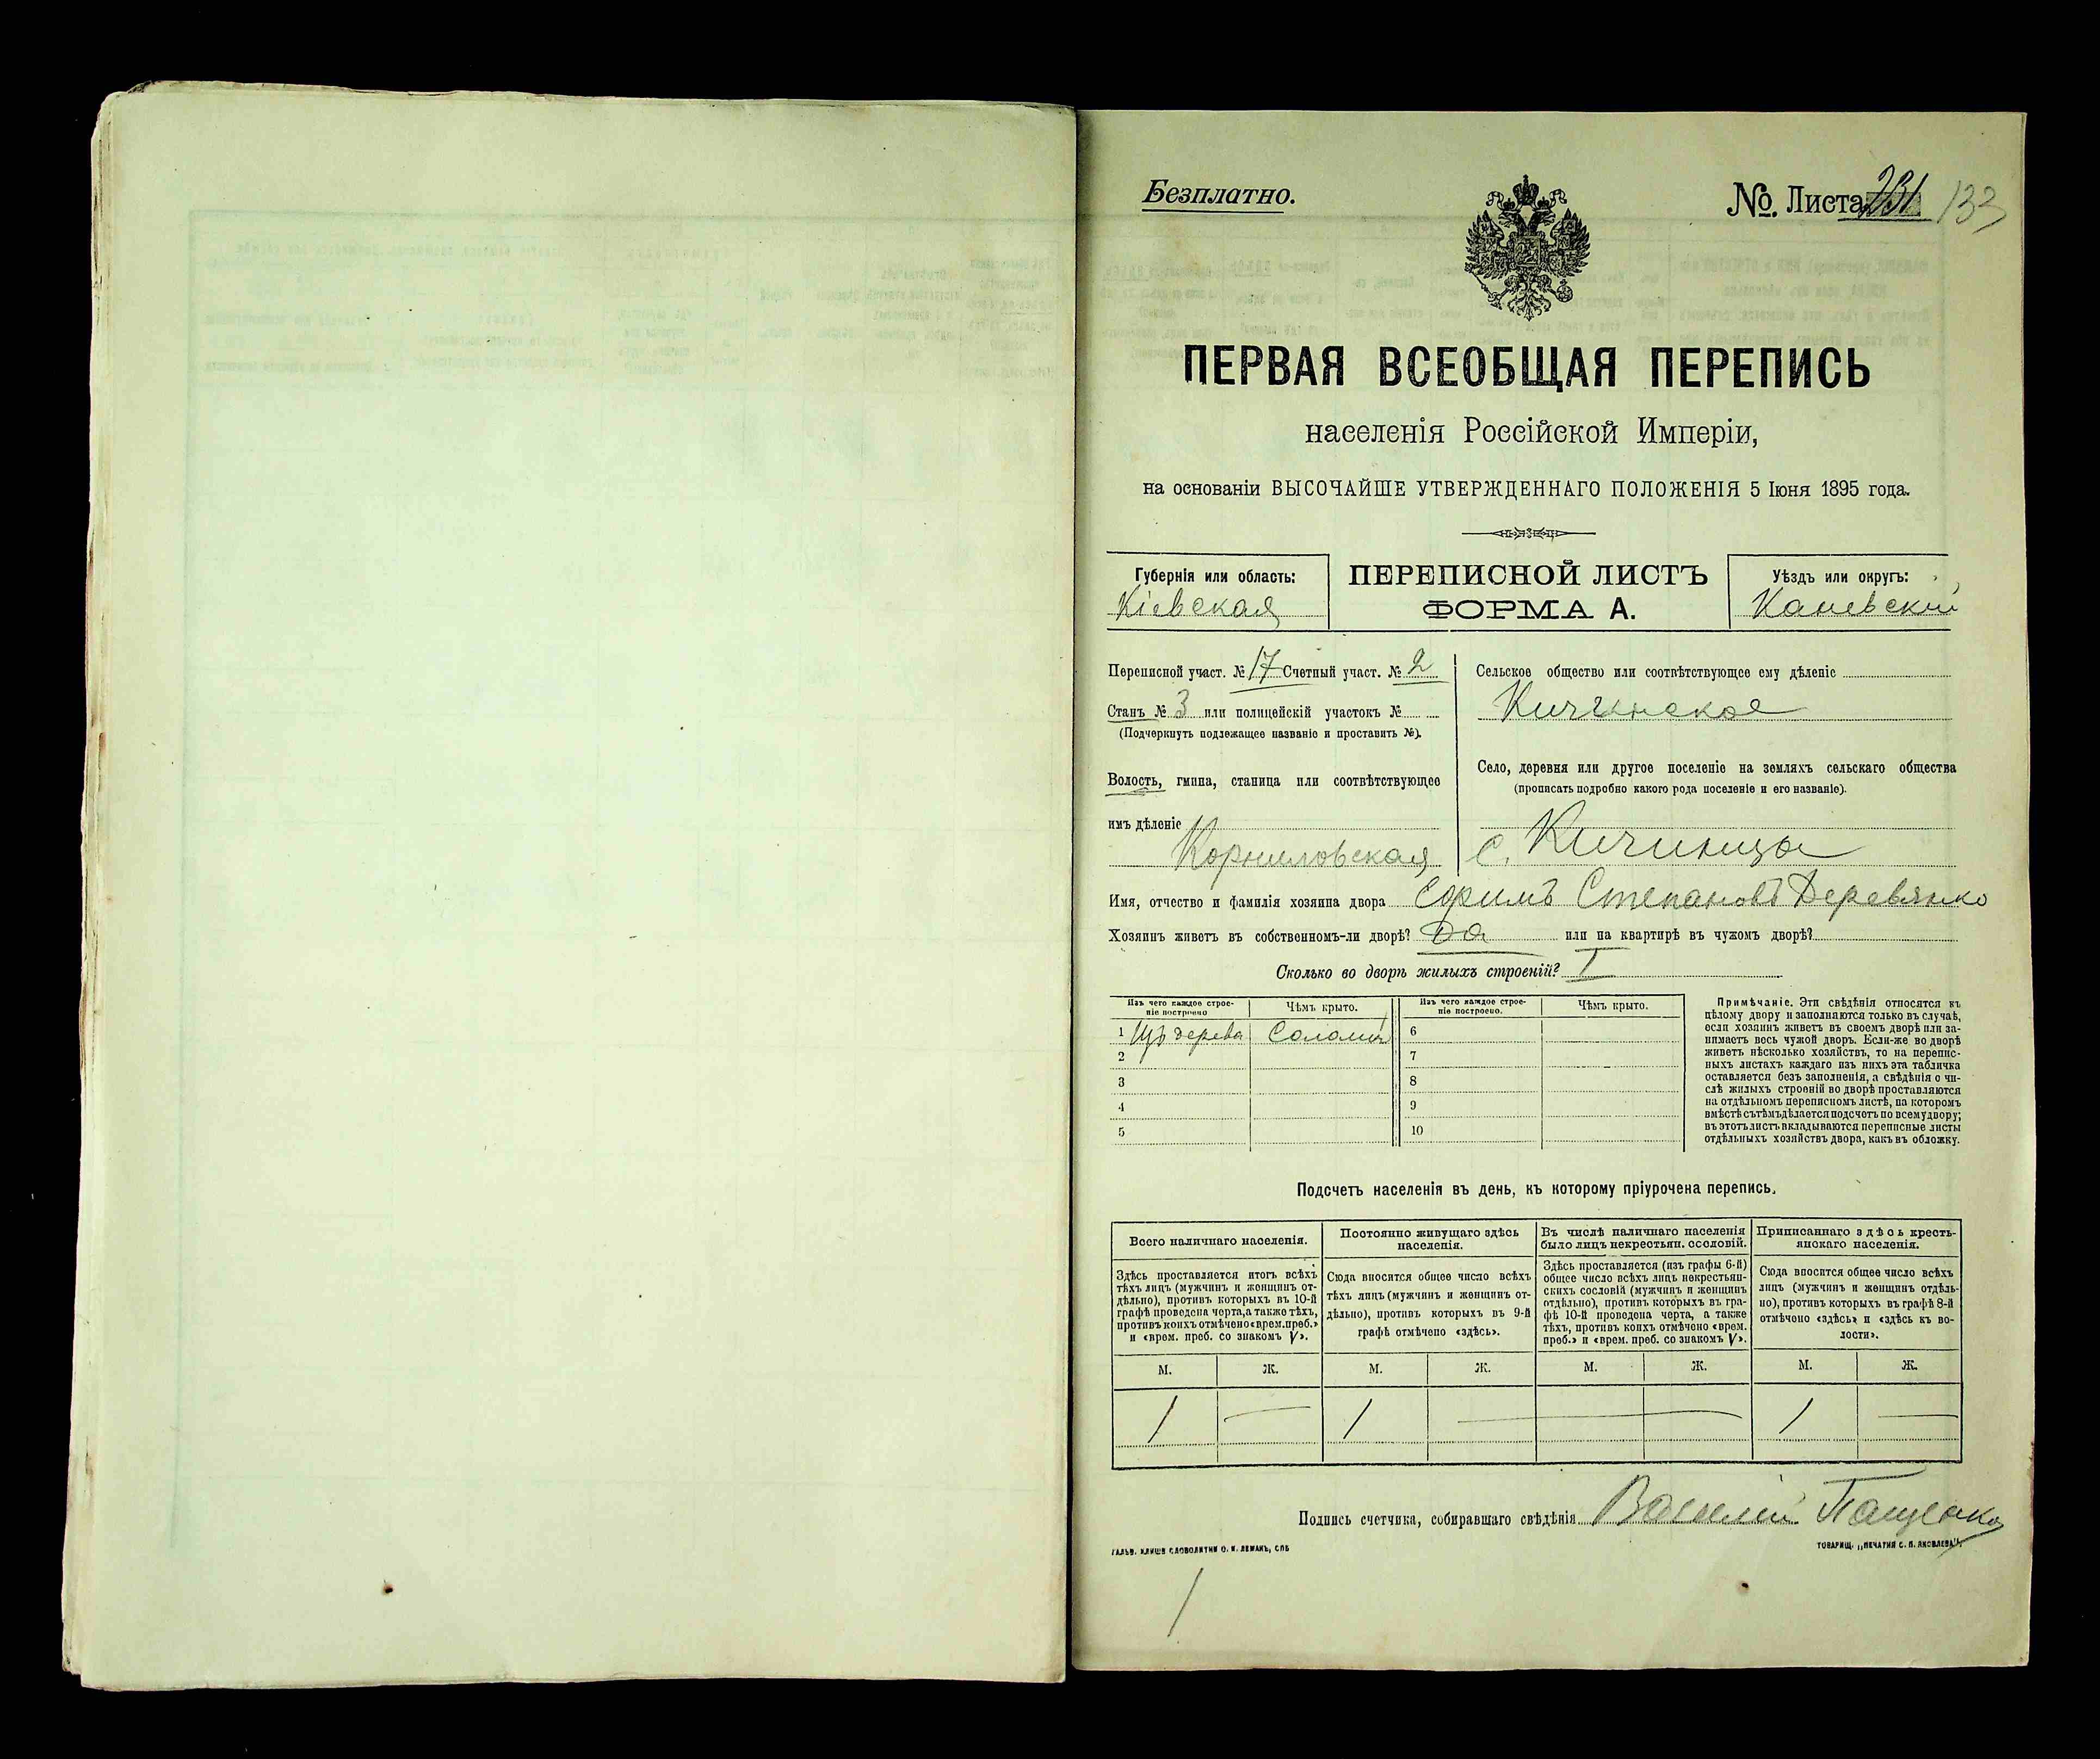 Безплатно.
№. Листа 231 133
ПЕРВАЯ ВСЕОБЩАЯ ПЕРЕПИСЬ
населенія Россійской Имперіи,
на основаніи ВЫСОЧАЙШЕ УТВЕРЖДЕННАГО ПОЛОЖЕНІЯ 5 Іюня 1895 года.
Губернія или область:
Кіевская
ПЕРЕПИСНОЙ ЛИСТЪ
ФОРМА А.
Уѣздъ или округъ:
Каневскій
Переписной участ. № 17 Счетный участ. № 2
Станъ № 3 или полицейскій участокъ №
(Подчеркнуть подлежащее названіе и проставить №).
Волость, гмина, станица или соотвѣтствующее
имъ дѣленіе
Корниловская
Сельское общество или соотвѣтствующее ему дѣленіе
Кичинское
Село, деревня или другое поселеніе на земляхъ сельскаго общества
(прописать подробно какого рода поселеніе и его названіе).
с. Кичинцы
Имя, отчество и фамилія хозяина двора Ефимъ Степановъ Деревянко
Хозяинъ живетъ въ собственномъ-ли дворѣ? Да или на квартирѣ въ чужомъ дворѣ?
Сколько во дворѣ жилыхъ строеній? I
Изъ чего каждое строе-
ніе построено
Чѣмъ крыто.
Изъ чего каждое строе-
ніе построено.
Чѣмъ крыто.
1 Изъ дерева Солома 6
2 7
3 8
4 9
5 10
Примѣчаніе. Эти свѣдѣнія относятся къ
цѣлому двору и заполняются только въ случаѣ,
если хозяинъ живетъ въ своемъ дворѣ или за-
нимаетъ весь чужой дворъ. Если-же во дворѣ
живетъ нѣсколько хозяйствъ, то на перепис-
ныхъ листахъ каждаго изъ нихъ эта табличка
оставляется безъ заполненія, а свѣдѣнія о чи-
слѣ жилыхъ строеній во дворѣ проставляются
на отдѣльномъ переписномъ листѣ, на которомъ
вмѣстѣ съ тѣмъ дѣлается подсчетъ по всему двору;
въ этотъ листъ вкладываются переписные листы
отдѣльныхъ хозяйствъ двора, какъ въ обложку.
Подсчетъ населенія въ день, къ которому пріурочена перепись.
Всего наличнаго населенія.
Постоянно живущаго здѣсь
населенія.
Въ числѣ наличнаго населенія
было лицъ некрестьян. сословій.
Приписаннаго здѣсь кресть-
янскаго населенія.
Здѣсь проставляется итогъ всѣхъ
тѣхъ лицъ (мужчинъ и женщинъ от-
дѣльно), противъ которыхъ въ 10-й
графѣ проведена черта, а также тѣхъ,
противъ коихъ отмѣчено «врем. преб.»
и «врем. преб. со знакомъ V».
Сюда вносится общее число всѣхъ
тѣхъ лицъ (мужчинъ и женщинъ от-
дѣльно), противъ которыхъ въ 9-й
графѣ отмѣчено «здѣсь».
Здѣсь проставляется (изъ графы 6-й)
общее число всѣхъ лицъ некрестьян-
скихъ сословій (мужчинъ и женщинъ
отдѣльно), противъ которыхъ въ гра-
фѣ 10-й проведена черта, а также
тѣхъ, противъ коихъ отмѣчено «врем.
преб.» и «врем. преб. со знакомъ V».
Сюда вносится общее число всѣхъ
лицъ (мужчинъ и женщинъ отдѣль-
но), противъ которыхъ въ графѣ 8-й
отмѣчено «здѣсь» и «здѣсь къ во-
лости».
М. Ж. М. Ж. М. Ж. М. Ж.
1 — 1 — — — 1 —
Подпись счетчика, собиравшаго свѣдѣнія Василій Пащенко
ГАЛЬВ. КЛИШЕ СЛОВОЛИТНИ О. И. ЛЕМАНЪ, СПБ
ТОВАРИЩ. „ПЕЧАТНЯ С. П. ЯКОВЛЕВА".
1